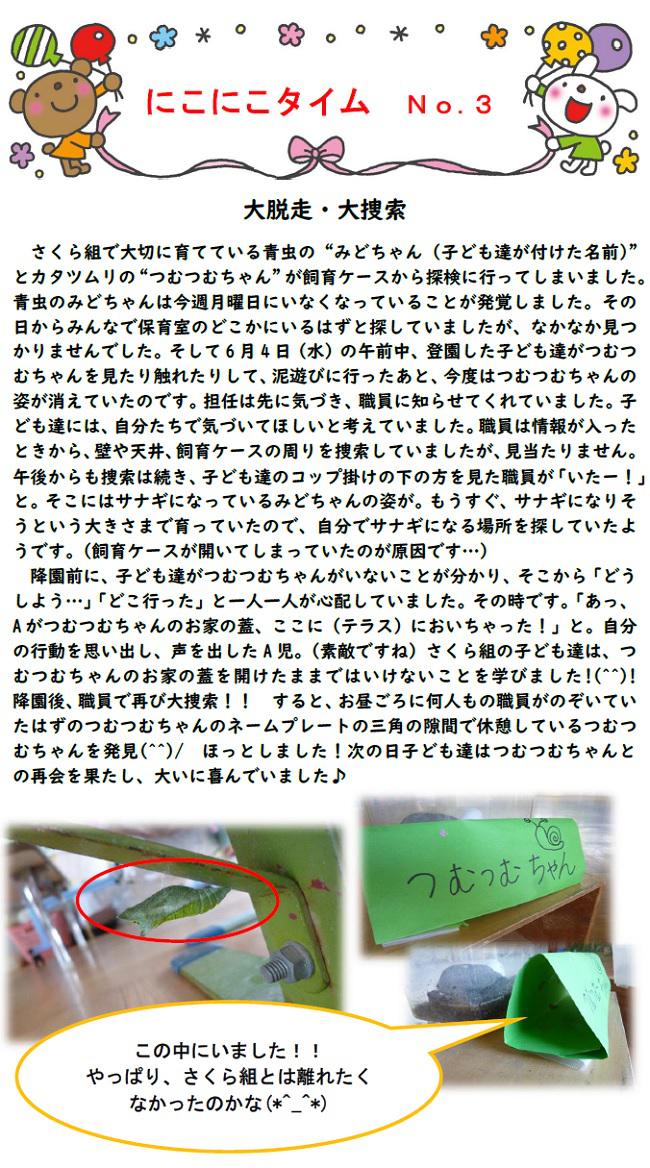 にこにこタイム　No.3
大脱走・大捜索
　さくら組で大切に育てている青虫の“みどちゃん（子ども達が付けた名前）”
とカタツムリの“つむつむちゃん”が飼育ケースから探検に行ってしまいました。
青虫のみどちゃんは今週月曜日にいなくなっていることが発覚しました。その
日からみんなで保育室のどこかにいるはずと探していましたが、なかなか見つ
かりませんでした。そして6月4日（水）の午前中、登園した子ども達がつむつ
むちゃんを見たり触れたりして、泥遊びに行ったあと、今度はつむつむちゃんの
姿が消えていたのです。担任は先に気づき、職員に知らせてくれていました。子
ども達には、自分たちで気づいてほしいと考えていました。職員は情報が入った
ときから、壁や天井、飼育ケースの周りを捜索していましたが、見当たりません。
午後からも捜索は続き、子ども達のコップ掛けの下の方を見た職員が「いたー！」
と。そこにはサナギになっているみどちゃんの姿が。もうすぐ、サナギになりそ
うという大きさまで育っていたので、自分でサナギになる場所を探していたよ
うです。（飼育ケースが開いてしまっていたのが原因です…）
　降園前に、子ども達がつむつむちゃんがいないことが分かり、そこから「どう
しよう…」「どこ行った」と一人一人が心配していました。その時です。「あっ、
Aがつむつむちゃんのお家の蓋、ここに（テラス）においちゃった！」と。自分
の行動を思い出し、声を出したA児。（素敵ですね）さくら組の子ども達は、つ
むつむちゃんのお家の蓋を開けたままではいけないことを学びました!(^^)!
降園後、職員で再び大捜索！！　すると、お昼ごろに何人もの職員がのぞいてい
たはずのつむつむちゃんのネームプレートの三角の隙間で休憩しているつむつ
むちゃんを発見(^^)/　ほっとしました！次の日子ども達はつむつむちゃんと
の再会を果たし、大いに喜んでいました♪
つむつむちゃん
この中にいました！！
やっぱり、さくら組とは離れたく
なかったのかな(*^_^*)